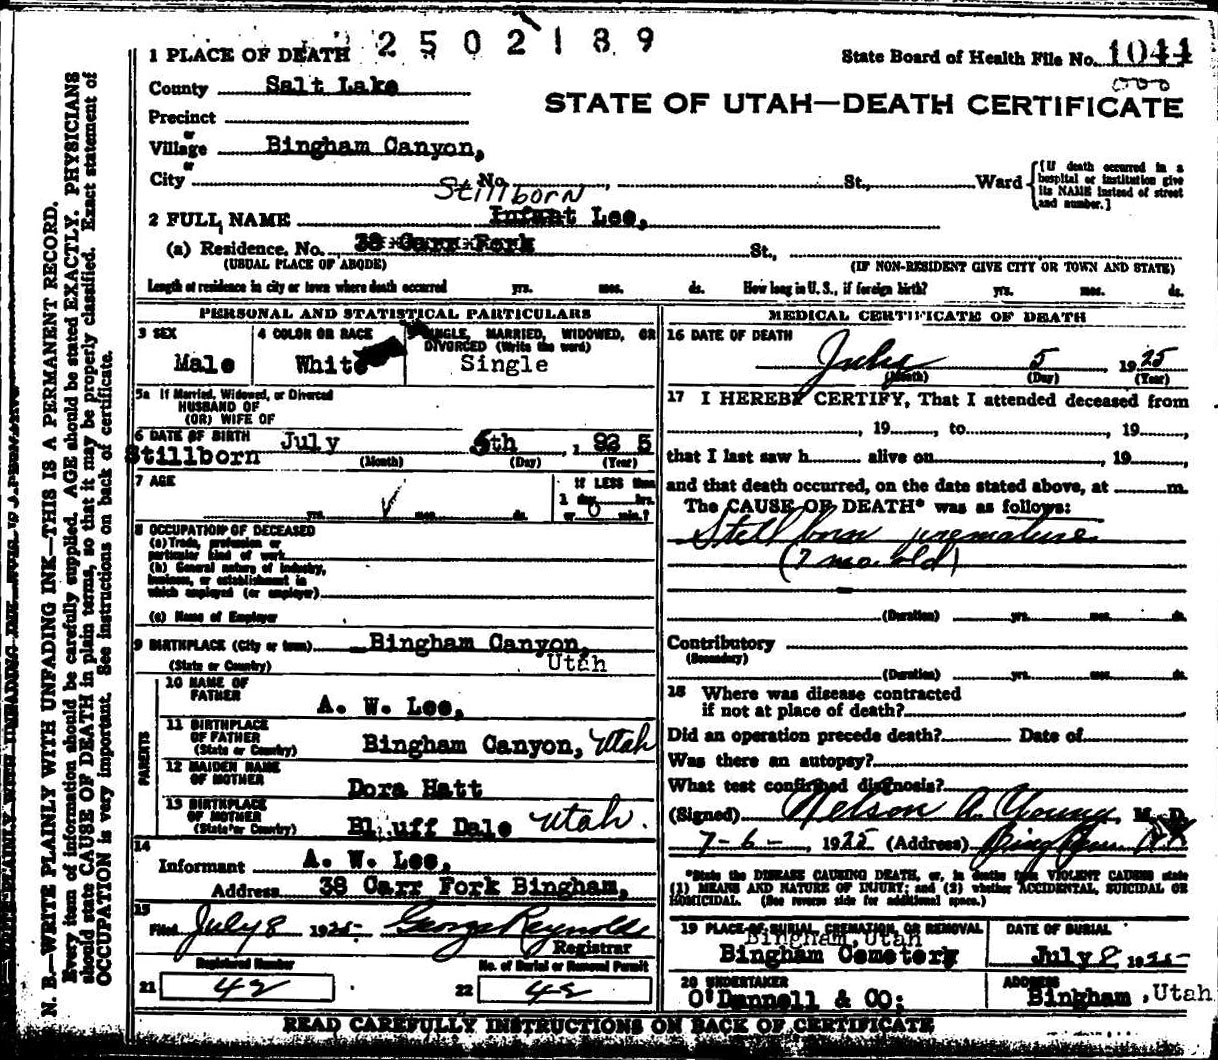 2502189
1 PLACE OF DEATH
State Board of Health File No. 1044
000
County Salt Lake
STATE OF UTAH—DEATH CERTIFICATE
Precinct
or
Village Bingham Canyon,
or
City No. St., Ward
[If death occurred in a hospital or institution give its NAME instead of street and number.]
Stillborn
2 FULL NAME Infant Lee,
(a) Residence, No. 38 Carr Fork St.,
(USUAL PLACE OF ABODE) (IF NON-RESIDENT GIVE CITY OR TOWN AND STATE)
Length of residence in city or town where death occurred yrs. mos. ds. How long in U. S., if foreign birth? yrs. mos. ds.
PERSONAL AND STATISTICAL PARTICULARS
3 SEX
Male
4 COLOR OR RACE
White
SINGLE, MARRIED, WIDOWED, OR
DIVORCED (Write the word)
Single
5a If Married, Widowed, or Divorced
HUSBAND OF
(OR) WIFE OF
6 DATE OF BIRTH July 5th, 1925
Stillborn (Month) (Day) (Year)
7 AGE
yrs. mos. ds.
If LESS than
1 day hrs.
or 0 min.?
8 OCCUPATION OF DECEASED
(a) Trade, profession or
particular kind of work
(b) General nature of industry,
business, or establishment in
which employed (or employer)
(c) Name of Employer
9 BIRTHPLACE (City or town) Bingham Canyon,
(State or Country) Utah
PARENTS
10 NAME OF
FATHER A. W. Lee,
11 BIRTHPLACE
OF FATHER
(State or Country) Bingham Canyon, Utah
12 MAIDEN NAME
OF MOTHER Dora Hatt
13 BIRTHPLACE
OF MOTHER
(State or Country) Bluff Dale Utah.
14
Informant A. W. Lee,
Address 38 Carr Fork Bingham,
15
Filed July 8 1925 George Reynolds
Registrar
Registered Number No. of Burial or Removal Permit
21 42 22 42
MEDICAL CERTIFICATE OF DEATH
16 DATE OF DEATH
July 5 1925
(Month) (Day) (Year)
17 I HEREBY CERTIFY, That I attended deceased from
, 19 , to , 19 ,
that I last saw h alive on , 19
and that death occurred, on the date stated above, at m.
The CAUSE OF DEATH* was as follows:
Stillborn premature
(7 mo. old)
(Duration) yrs. mos. ds.
Contributory
(Secondary)
(Duration) yrs. mos. ds.
18 Where was disease contracted
if not at place of death?
Did an operation precede death? Date of
Was there an autopsy?
What test confirmed diagnosis?
(Signed) Nelson A. Young, M. D.
7-6-, 1925 (Address)
*State the DISEASE CAUSING DEATH, or, in deaths from VIOLENT CAUSES state
(1) MEANS AND NATURE OF INJURY; and (2) whether ACCIDENTAL, SUICIDAL OR
HOMICIDAL. (See reverse side for additional space.)
19 PLACE OF BURIAL, CREMATION, OR REMOVAL
Bingham, Utah
Bingham Cemetery
DATE OF BURIAL
July 8 1925
20 UNDERTAKER
O'Donnell & CO;
ADDRESS
Bingham, Utah
READ CAREFULLY INSTRUCTIONS ON BACK OF CERTIFICATE
N. B.—WRITE PLAINLY WITH UNFADING INK—THIS IS A PERMANENT RECORD.
Every item of information should be carefully supplied. AGE should be stated EXACTLY. PHYSICIANS
should state CAUSE OF DEATH in plain terms, so that it may be properly classified. Exact statement of
OCCUPATION is very important. See instructions on back of certificate.